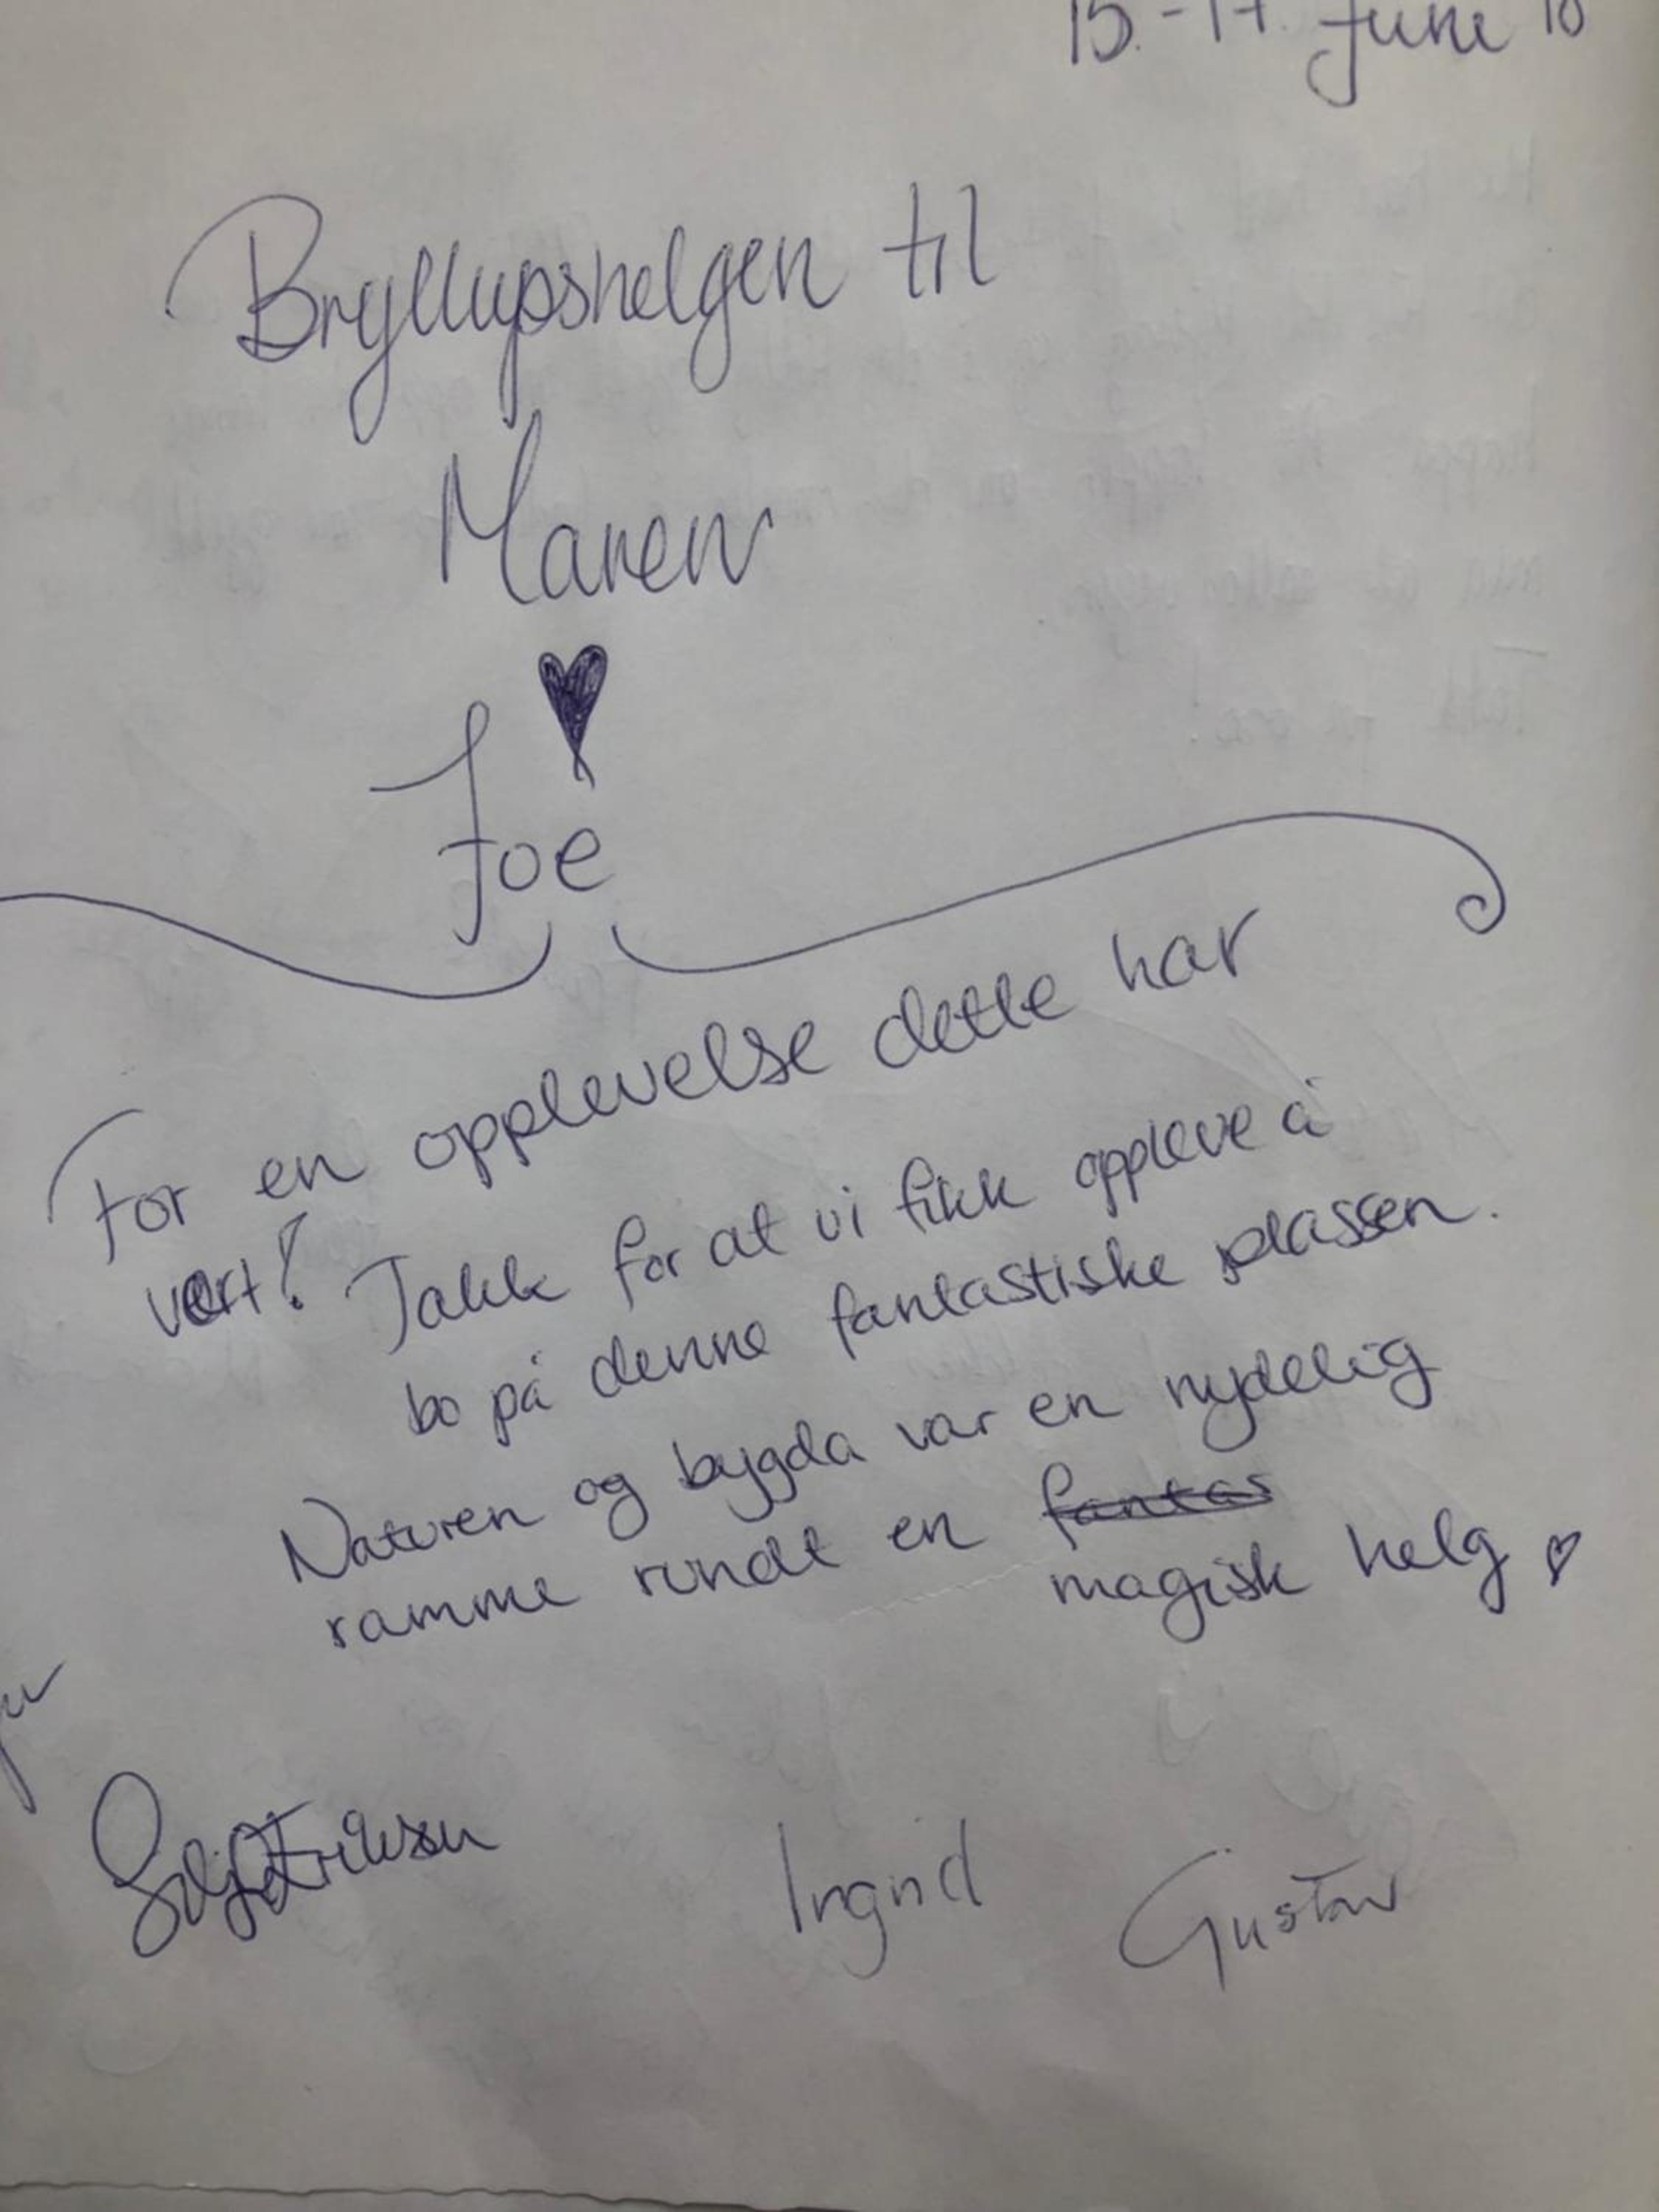 15.-17. June 18
Bryllupshelgen til
Maren
♥
Joe
For en opplevelse dette har
vært! Takk for at vi fikk oppleve å
bo på denne fantastiske plassen.
Naturen og bygda var en nydelig
ramme rundt en fantas
magisk helg ♡
Eriksen
Ingrid
Gustav